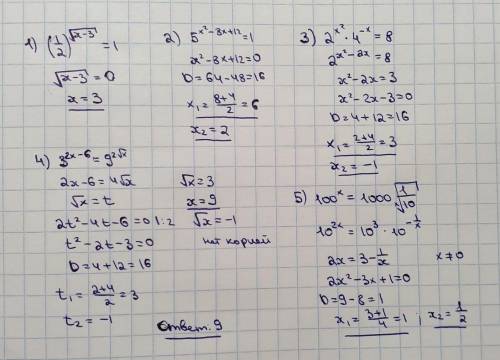 1) (1/2)^√(x-3) = 1
√(x-3) = 0
x = 3
2) 5^(x²-8x+12) = 1
x²-8x+12=0
D = 64-48=16
x₁ = (8+4)/2 = 6
x₂ = 2
3) 2^(x²) · 4^(-x) = 8
2^(x²-2x) = 8
x²-2x = 3
x²-2x-3=0
D=4+12=16
x₁ = (2+4)/2 = 3
x₂ = -1
4) 3^(2x-6) = 9^(2√x)
2x-6 = 4√x
√x = t
2t²-4t-6=0 |:2
t²-2t-3=0
D=4+12=16
t₁ = (2+4)/2 = 3
t₂ = -1
√x = 3
x = 9
√x = -1
нет корней
Ответ. 9
5) 100^x = 1000 ˣ√(1/10)
10^(2x) = 10³ · 10^(-1/x)
2x = 3 - 1/x x ≠ 0
2x²-3x+1=0
D=9-8=1
x₁ = (3+1)/4 = 1 ; x₂ = 1/2